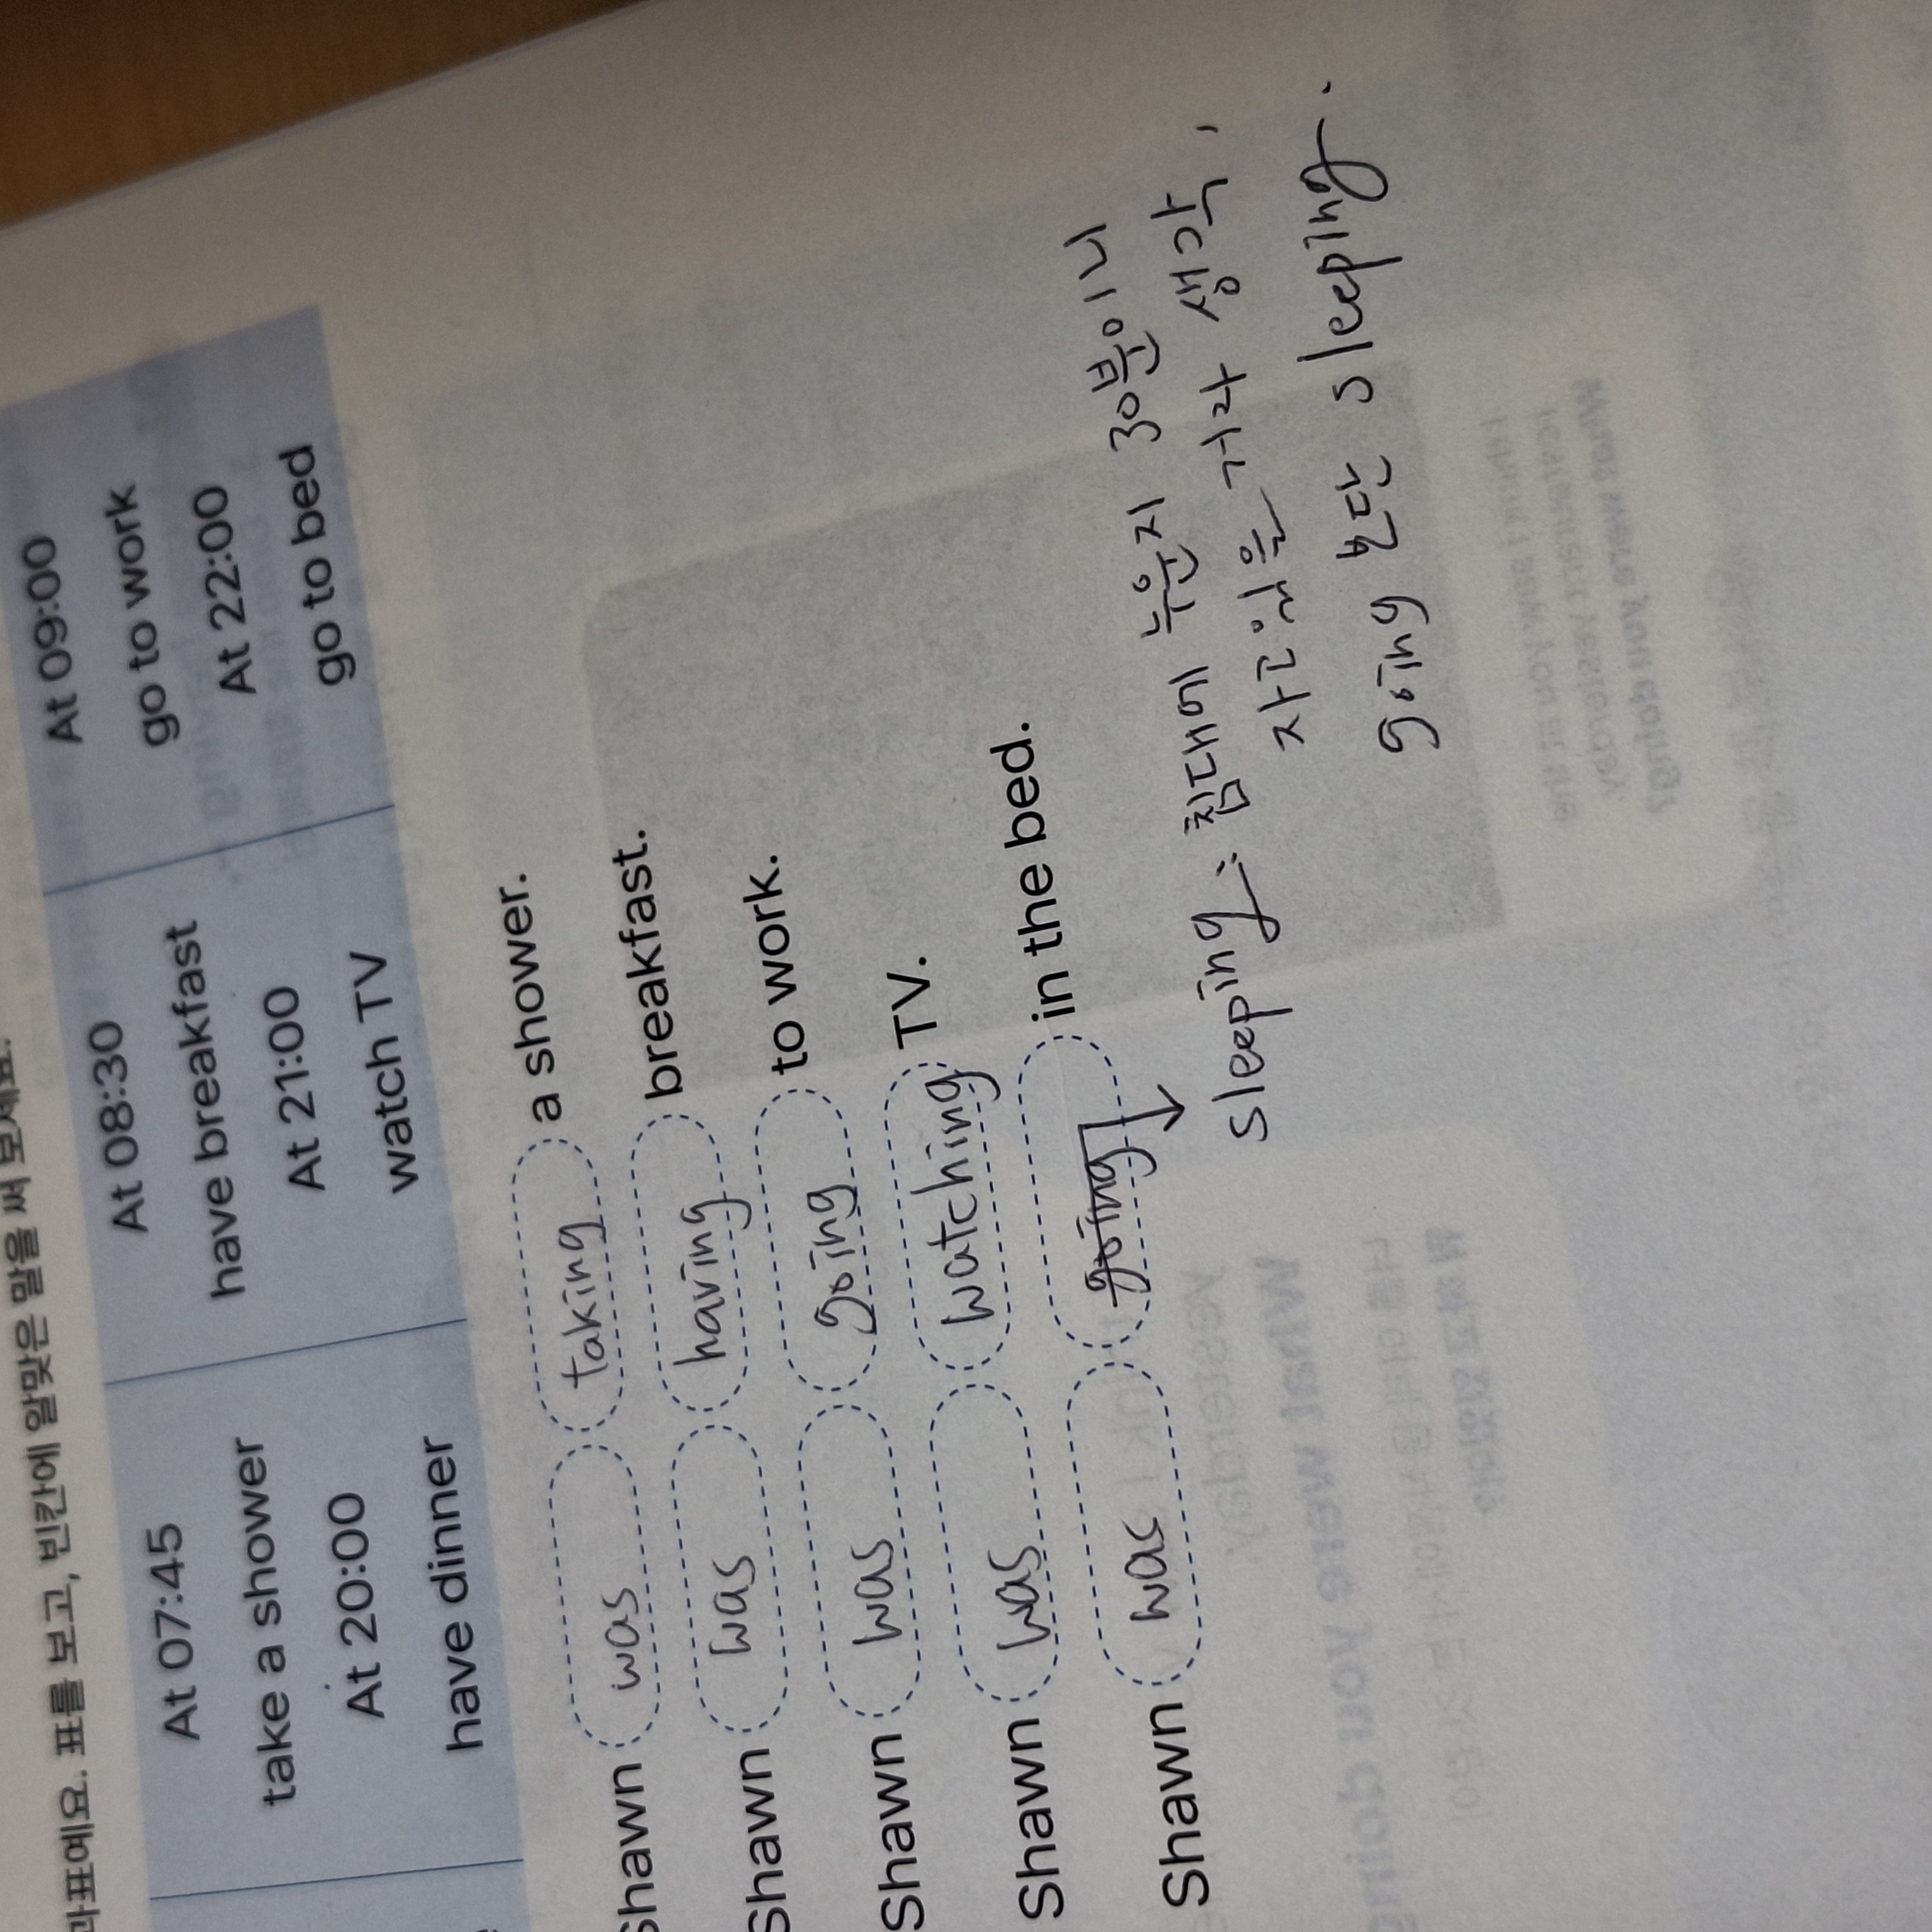 과표예요. 표를 보고, 빈칸에 알맞은 말을 써 보세요.
At 07:45 At 08:30 At 09:00
take a shower have breakfast go to work
At 20:00 At 21:00 At 22:00
have dinner watch TV go to bed
Shawn was taking a shower.
Shawn was having breakfast.
Shawn was going to work.
Shawn was watching TV.
Shawn was going in the bed.
sleeping: 침대에 누운지 30분이니
자고있을거라 생각,
going 보단 sleeping.